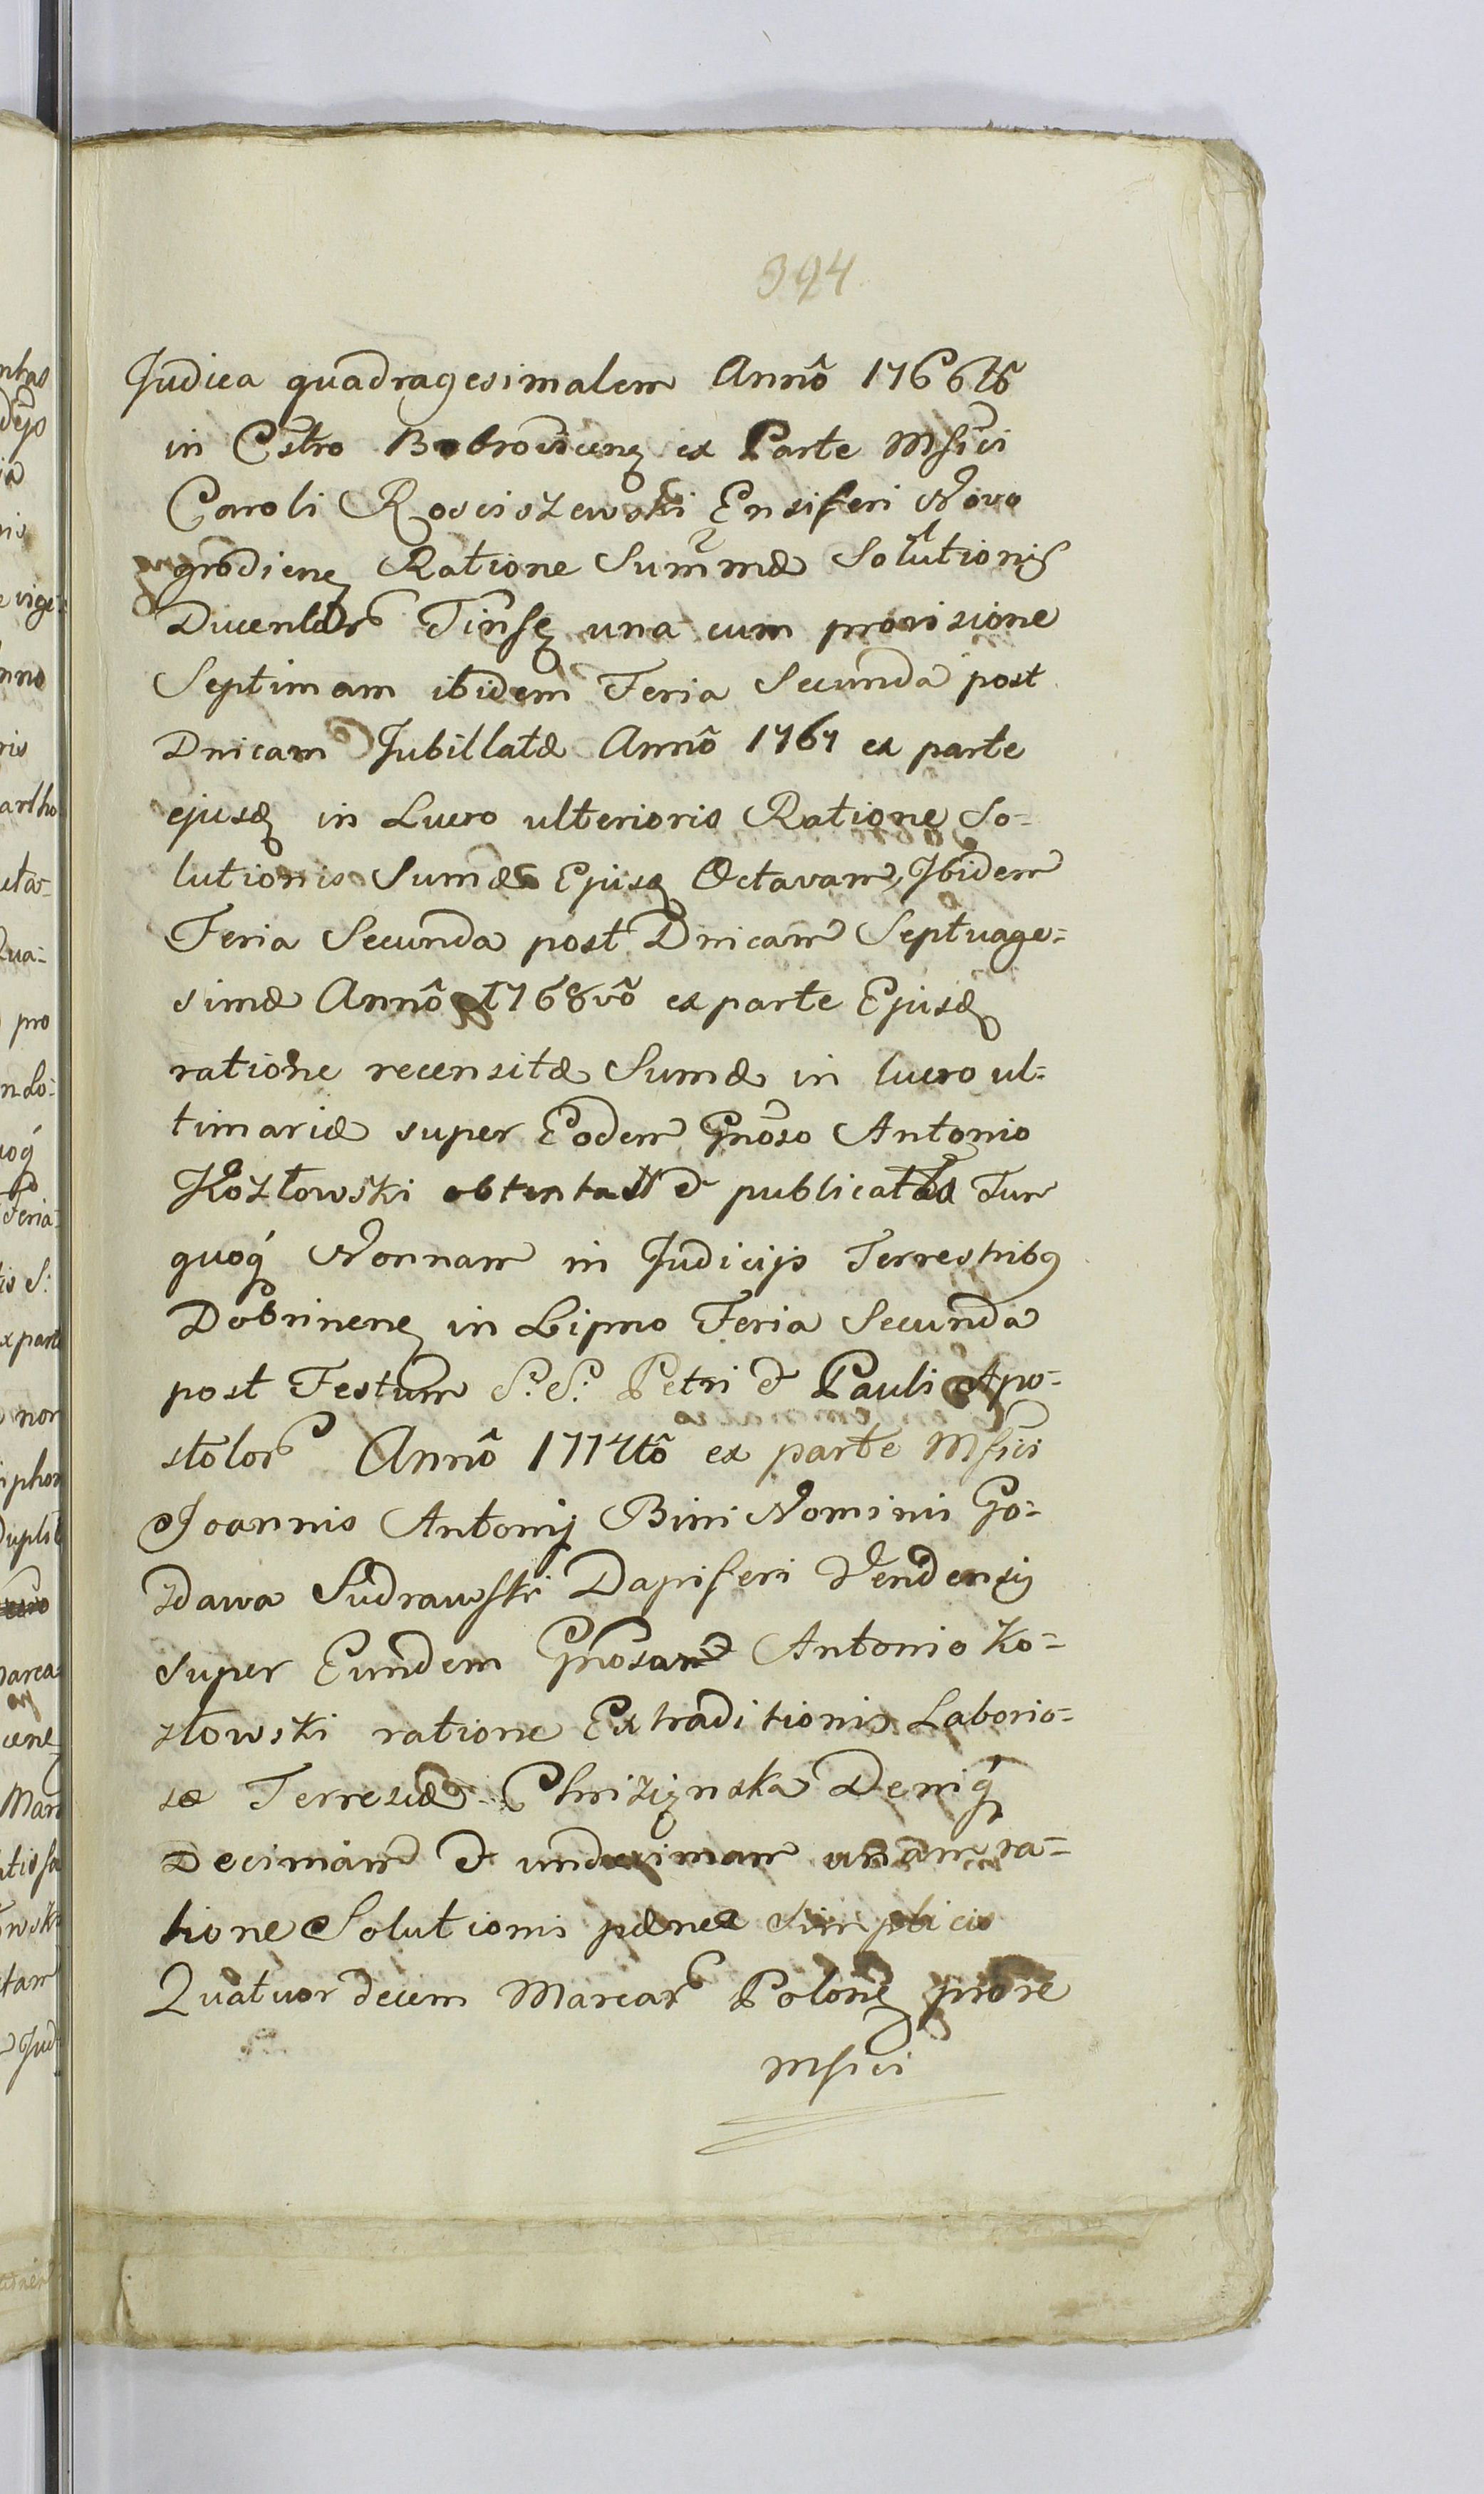 394
Judica quadragesimalem Annô 1766tô
in Cstro Bobrovicen ex Parte Mfici
Caroli Rosciszewski Ensiferi Novo
grodien Ratione Summæ Solutionis
Ducentar Tinf una cum provisione
Septimam ibidem Feria Secunda post
Dnicam Jubillatæ Annô 1767 ex parte
ejusd in Lucro ulterioris Ratione So-
lutionis Sumæ Ejusd Octavam, Ibidem
Feria Secunda post Dnicam Septuage-
simæ Annô 1768vô ex parte Ejusd
ratione recensitæ Sumæ in lucro ul-
timariæ super Eodem Gnoso Antonio
Kozłowski obtentas & publicatas Tum
quoq́ Nonnam in Judicijs Terrestribs
Dobrinen in Lipno Feria Secunda
post Festum S. S. Petri & Pauli Apo-
stolor Annô 1774tô ex parte Mfici
Joannis Antonij Bini Nominis Go-
zdawa Sudrawski Dapiferi Vendensis
super Eundem Gnosam Antonio Ko-
złowski ratione Extraditionis Laborio-
sæ Terresiæ Chrizinska Deniq́
Decimam & undecimam unam ra-
tione Solutionis pænæ simplicis
Quatuordecem Marcar Polon prore
Mfici